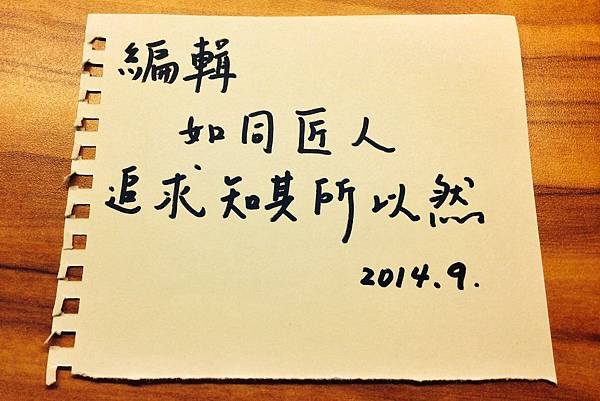 編輯
如同匠人
追求知其所以然
2014.9.